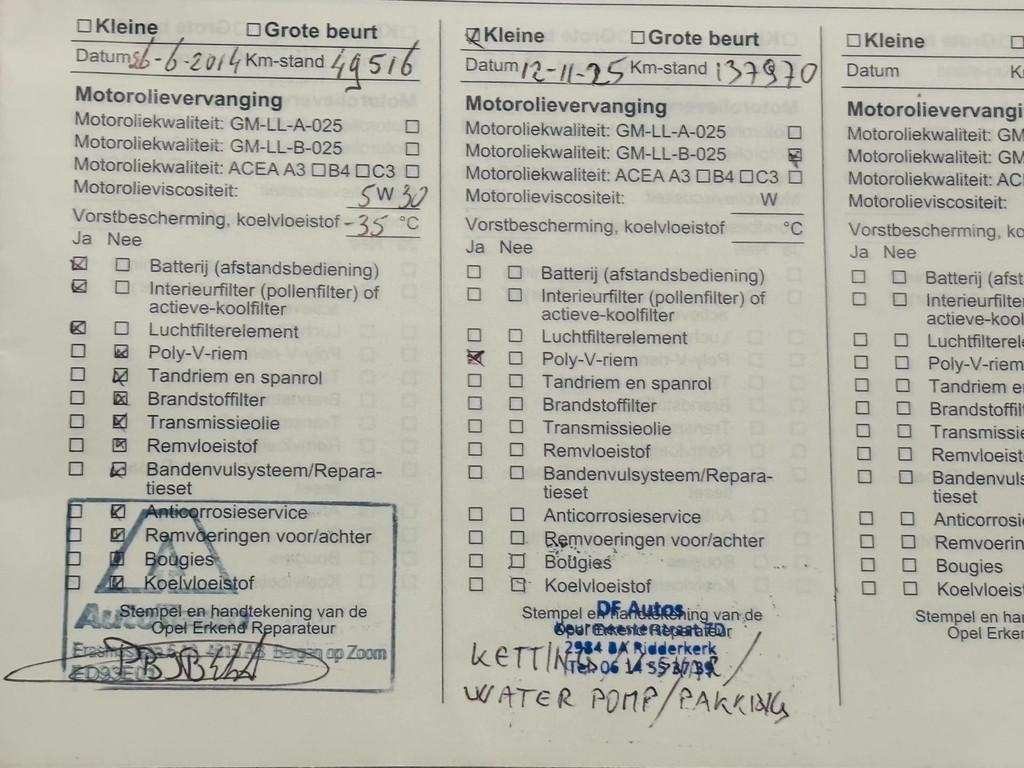 Kleine Grote beurt
Datum 26-6-2014 Km-stand 49516
Motorolievervanging
Motoroliekwaliteit: GM-LL-A-025
Motoroliekwaliteit: GM-LL-B-025
Motoroliekwaliteit: ACEA A3 B4 C3
Motorolieviscositeit: 5W30
Vorstbescherming, koelvloeistof -35 °C
Ja Nee
Batterij (afstandsbediening)
Interieurfilter (pollenfilter) of
actieve-koolfilter
Luchtfilterelement
Poly-V-riem
Tandriem en spanrol
Brandstoffilter
Transmissieolie
Remvloeistof
Bandenvulsysteem/Repara-
tieset
Anticorrosieservice
Remvoeringen voor/achter
Bougies
Koelvloeistof
Stempel en handtekening van de
Opel Erkend Reparateur
Bergen op Zoom
Kleine Grote beurt
Datum 12-11-25 Km-stand 137970
Motorolievervanging
Motoroliekwaliteit: GM-LL-A-025
Motoroliekwaliteit: GM-LL-B-025
Motoroliekwaliteit: ACEA A3 B4 C3
Motorolieviscositeit: W
Vorstbescherming, koelvloeistof °C
Ja Nee
Batterij (afstandsbediening)
Interieurfilter (pollenfilter) of
actieve-koolfilter
Luchtfilterelement
Poly-V-riem
Tandriem en spanrol
Brandstoffilter
Transmissieolie
Remvloeistof
Bandenvulsysteem/Repara-
tieset
Anticorrosieservice
Remvoeringen voor/achter
Bougies
Koelvloeistof
Stempel en handtekening van de
Opel Erkend Reparateur
DF Autos
2984 BA Ridderkerk
Tel: 06 14 55 37 39
KETTING
WATER POMP/PAKKING
Kleine
Datum K
Motorolievervangi
Motoroliekwaliteit: GM
Motoroliekwaliteit: GM
Motoroliekwaliteit: AC
Motorolieviscositeit:
Vorstbescherming, ko
Ja Nee
Batterij (afst
Interieurfilter
actieve-koolf
Luchtfiltere
Poly-V-riem
Tandriem en
Brandstoffil
Transmissie
Remvloeist
Bandenvuls
tieset
Anticorrosi
Remvoerin
Bougies
Koelvloeist
Stempel en h
Opel Erken